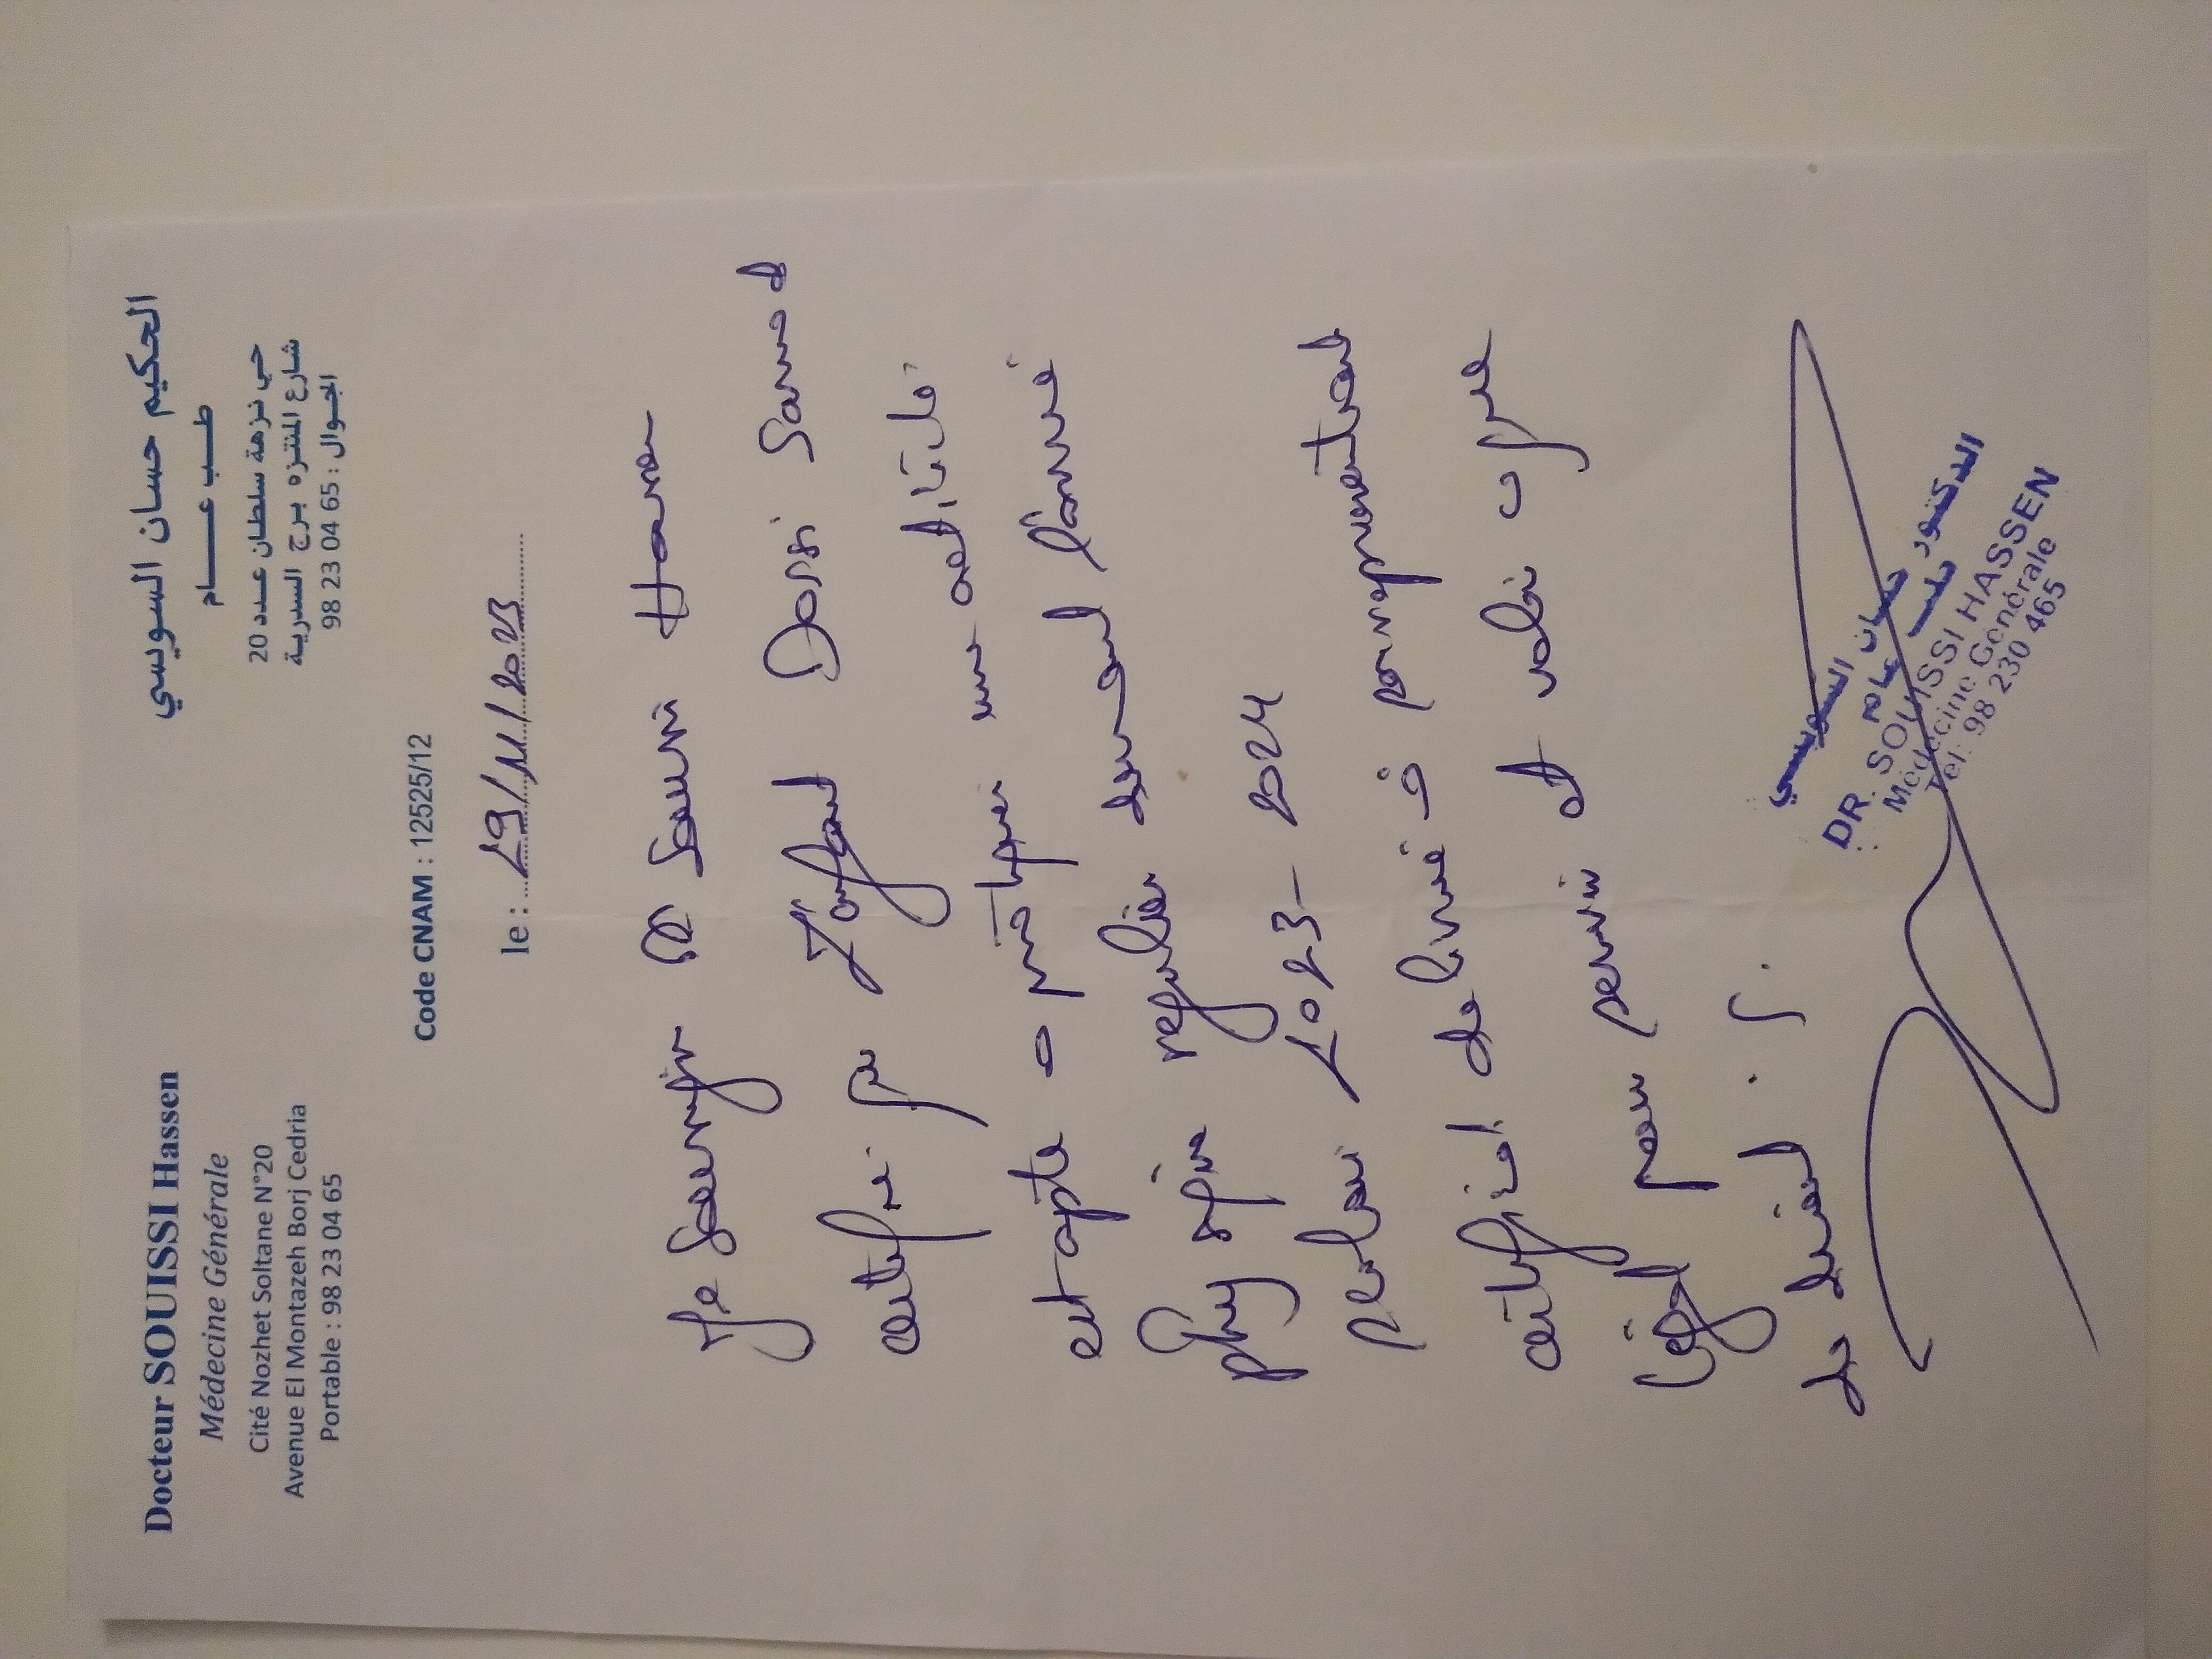 Docteur SOUISSI Hassen
Médecine Générale
Cité Nozhet Soltane N°20
Avenue El Montazeh Borj Cedria
Portable : 98 23 04 65
الحكيم حسان السويسي
طب عام
حي نزهة سلطان عدد 20
شارع المنتزه برج السدرية
الجوال : 98 23 04 65
Code CNAM : 12525/12
le : 29/11/2023
Je soussigné Dr Souissi Hassen
certifie que l'enfant Dorsi
est apte a pratiquer une activité
physique régulière durant l'année
scolaire 2023-2024
certificat delivré à
légal pour servir et valoir ce que
de droit.
الدكتور حسان السويسي
طب عام
DR. SOUISSI HASSEN
Médecine Générale
Tel: 98 230 465